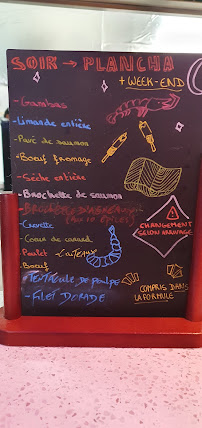 SOIR → PLANCHA
+ WEEK-END
- Gambas
- Limande entière
- Pavé de saumon
- Boeuf fromage
- Seiche entière
- Brochette de saumon
- Crevette
- Coeur de canard
- Poulet
- Boeuf
- TENTACULE DE POULPE
- FILET DORADE
CHANGEMENT
SELON ARRIVAGE
COMPRIS DANS
LA FORMULE